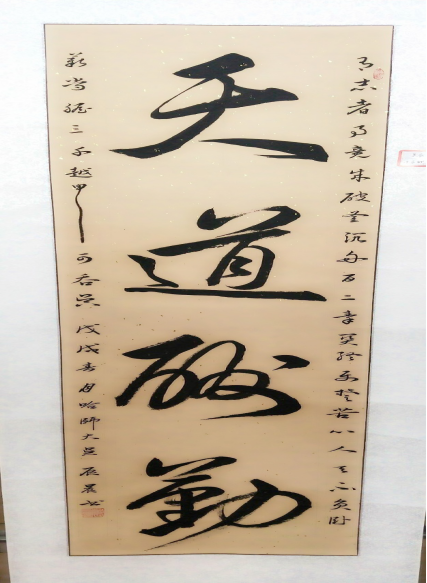 有志者事竟成破釜沉舟百二秦关终属楚苦心人天不负卧
天道酬勤
薪尝胆三千越甲可吞吴 戊戌春月哈師大